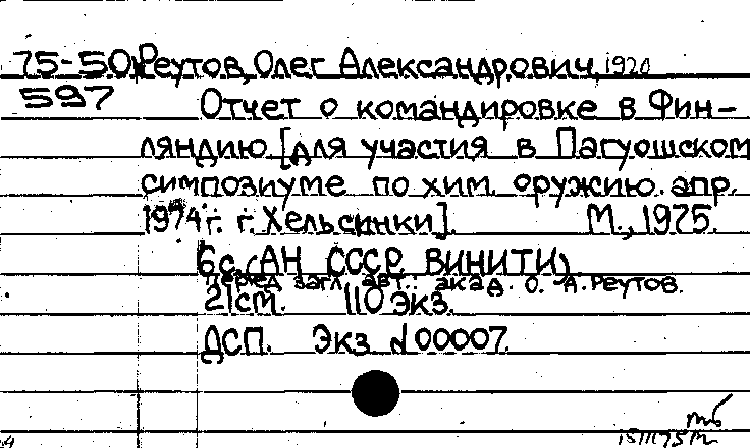 75-50 Реутов, Олег Александрович, 1920
597 Отчет о командировке в Фин-
ляндию [для участия в Пагуошском
симпозиуме по хим. оружию. апр.
1974г. г. Хельсинки]. М., 1975.
6с. (АН СССР. ВИНИТИ)
Перед загл. авт.: акад. О. А. Реутов.
21см. 110 экз.
ДСП. Экз N 00007.